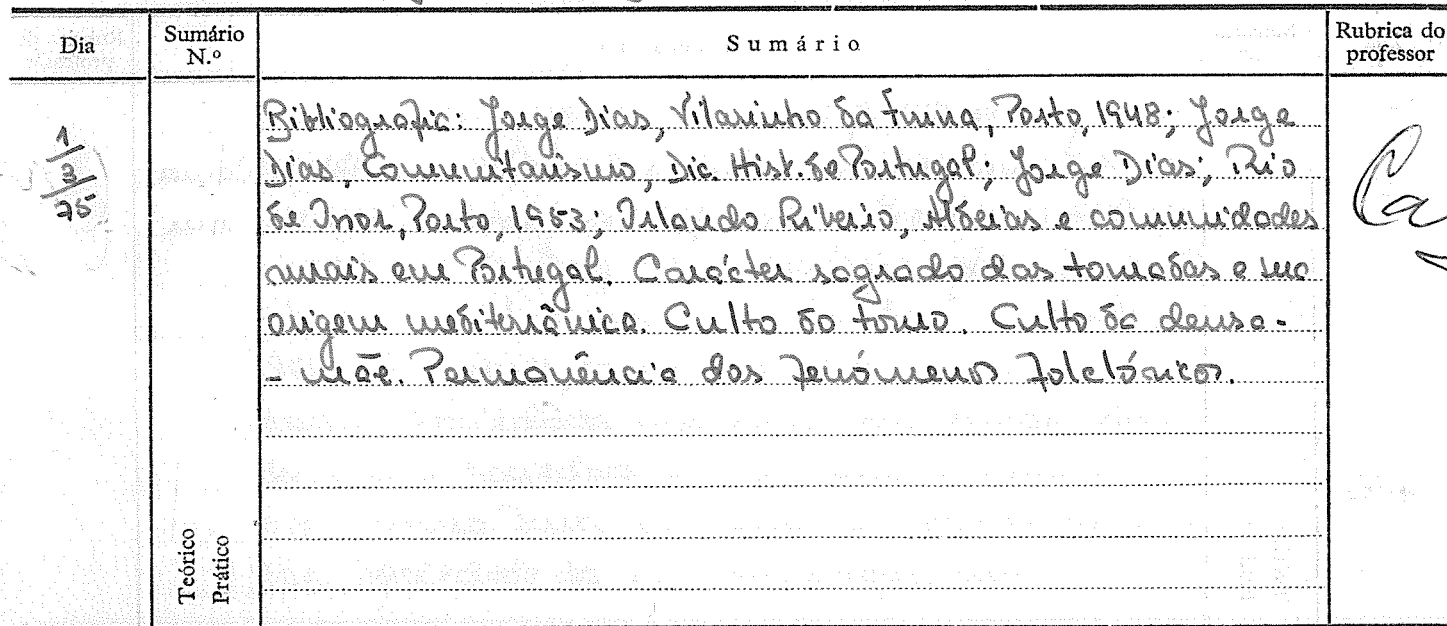 Dia
Sumário N.º
Sumário
Rubrica do professor
1/3/75
Bibliografia: Jorge Dias, Vilarinho da Furna, Porto, 1948; Jorge
Dias, Comunitarismo, Dic. Hist. de Portugal; Jorge Dias; Rio
de Onor, Porto, 1953; Orlando Ribeiro, Aldeias e comunidades
rurais em Portugal. Carácter sagrado das touradas e sua
origem mediterrânica. Culto do touro. Culto da deusa-
-mãe. Permanência dos fenómenos folclóricos.
Teórico
Prático